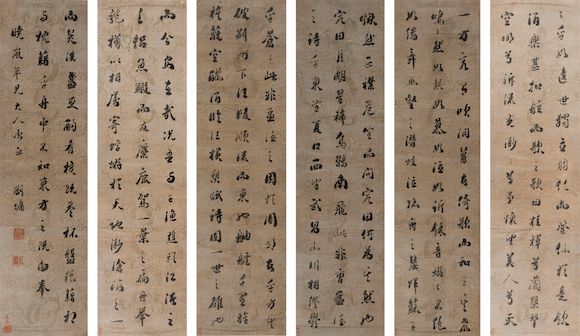 乎如遺世獨立羽化而登仙於是飲
酒樂甚扣舷而歌之歌曰桂棹兮蘭槳擊
空明兮泝流光渺渺兮予懷望美人兮天
一方客有吹洞簫者倚歌而和之其聲
嗚嗚然如怨如慕如泣如訴餘音嫋嫋不絕
如縷舞幽壑之潛蛟泣孤舟之嫠婦蘇子
愀然正襟危坐而問客曰何為其然也
客曰月明星稀烏鵲南飛此非曹孟德
之詩乎東望夏口西望武昌山川相繆鬱
乎蒼蒼此非孟德之困於周郎者乎方其
破荊州下江陵順流而東也舳艫千里旌
旗蔽空釃酒臨江橫槊賦詩固一世之雄也
而今安在哉況吾與子漁樵於江渚之
上侶魚蝦而友麋鹿駕一葉之扁舟舉
匏樽以相屬寄蜉蝣於天地渺滄海之一
而笑洗盞更酌肴核既盡杯盤狼藉相
與枕藉乎舟中不知東方之既白奉
曉嵐年兄大人 正 劉墉